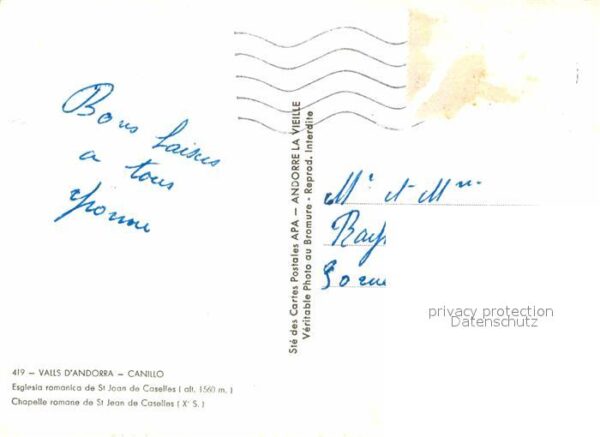 Bons baisers
a tous
Yvonne
Mr et Mme
Ray
privacy protection
Datenschutz
Sté des Cartes Postales APA — ANDORRE LA VIEILLE
Véritable Photo au Bromure - Reprod. Interdite
419 — VALLS D'ANDORRA — CANILLO
Esglesia romanica de St Joan de Caselles ( alt. 1560 m. )
Chapelle romane de St Jean de Caselles ( Xe S. )